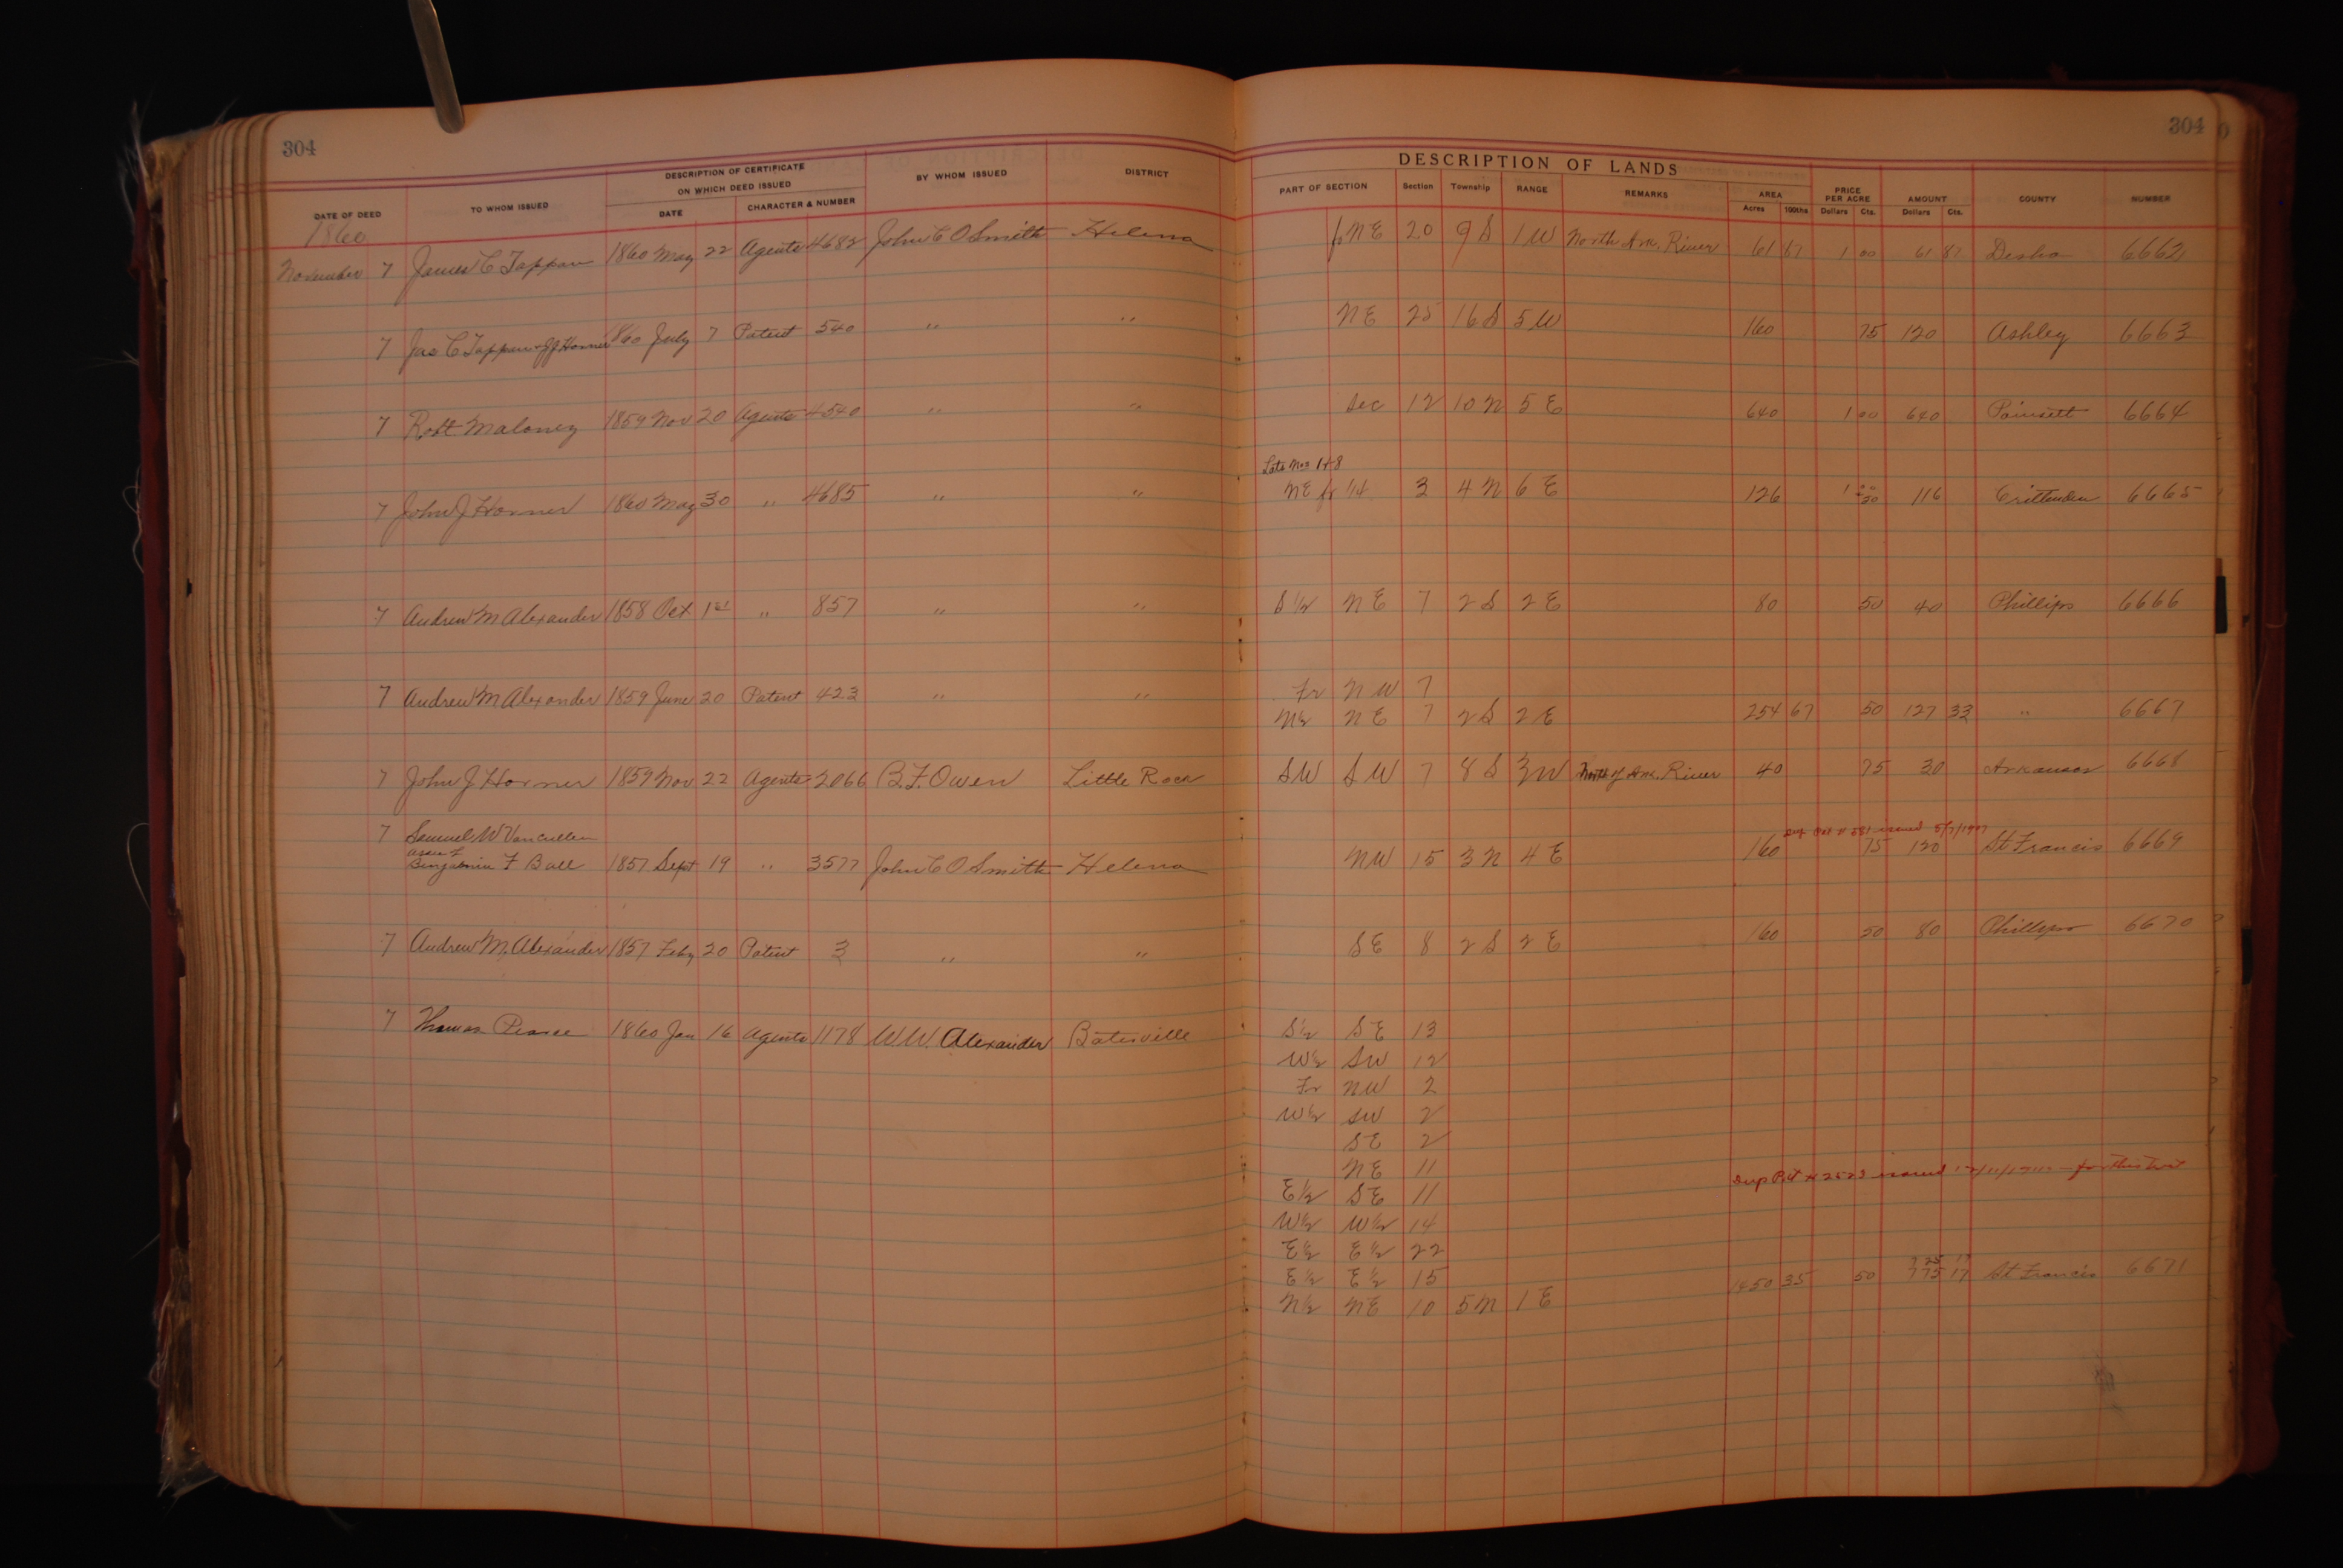 304
304
DESCRIPTION OF LANDS
DATE OF DEED TO WHOM ISSUED DESCRIPTION OF CERTIFICATE ON WHICH DEED ISSUED DATE CHARACTER & NUMBER BY WHOM ISSUED DISTRICT PART OF SECTION Section Township RANGE REMARKS AREA Acres 100ths PRICE PER ACRE Dollars Cts. AMOUNT Dollars Cts. COUNTY NUMBER
1860
November 7 James C Tappan 1860 May 22 Agents 4682 John C O Smith Helena fr NE 20 9 S 1 W North Ark. River 61 87 1 00 61 87 Desha 6662
7 Jas C Tappan & JJ Horner 1860 July 7 Patent 540 " " NE 25 16 S 5 W 160 75 120 Ashley 6663
7 Robt Maloney 1859 Nov 20 Agents 4540 " " Sec 12 10 N 5 E 640 1 00 640 Poinsett 6664
Lots Nos 1 & 8
7 John J Horner 1860 May 30 " 4685 " " NE fr 1/4 3 4 N 6 E 126 116 Crittenden 6665
7 Andrew M Alexander 1858 Oct 1st " 857 " " S 1/2 NE 7 2 S 2 E 80 50 40 Phillips 6666
7 Andrew M Alexander 1859 June 20 Patent 423 " " Fr NW 7
N 1/2 NE 7 2 S 2 E 254 67 50 127 33 " 6667
7 John J Horner 1859 Nov 22 Agents 2066 B. F. Owen Little Rock SW SW 7 8 S 3 W North of Ark. River 40 75 30 Arkansas 6668
7 Samuel W Vancullen
assee of
Benjamin F Ball 1857 Sept 19 " 3577 John C O Smith Helena NW 15 3 N 4 E 160 75 120 St Francis 6669
7 Andrew M. Alexander 1857 Feby 20 Patent 3 " " SE 8 2 S 2 E 160 50 80 Phillips 6670
7 Thomas Pearce 1860 Jan 16 Agents 1178 W. W. Alexander Batesville S 1/2 SE 13
W 1/2 SW 12
Fr NW 2
W 1/2 SW 2
SE 2
NE 11
Dup Pat # issued for this Tract
E 1/2 SE 11
W 1/2 W 1/2 14
E 1/2 E 1/2 22
E 1/2 E 1/2 15
N 1/2 NE 10 5 N 1 E 1450 35 50 775 17 St Francis 6671